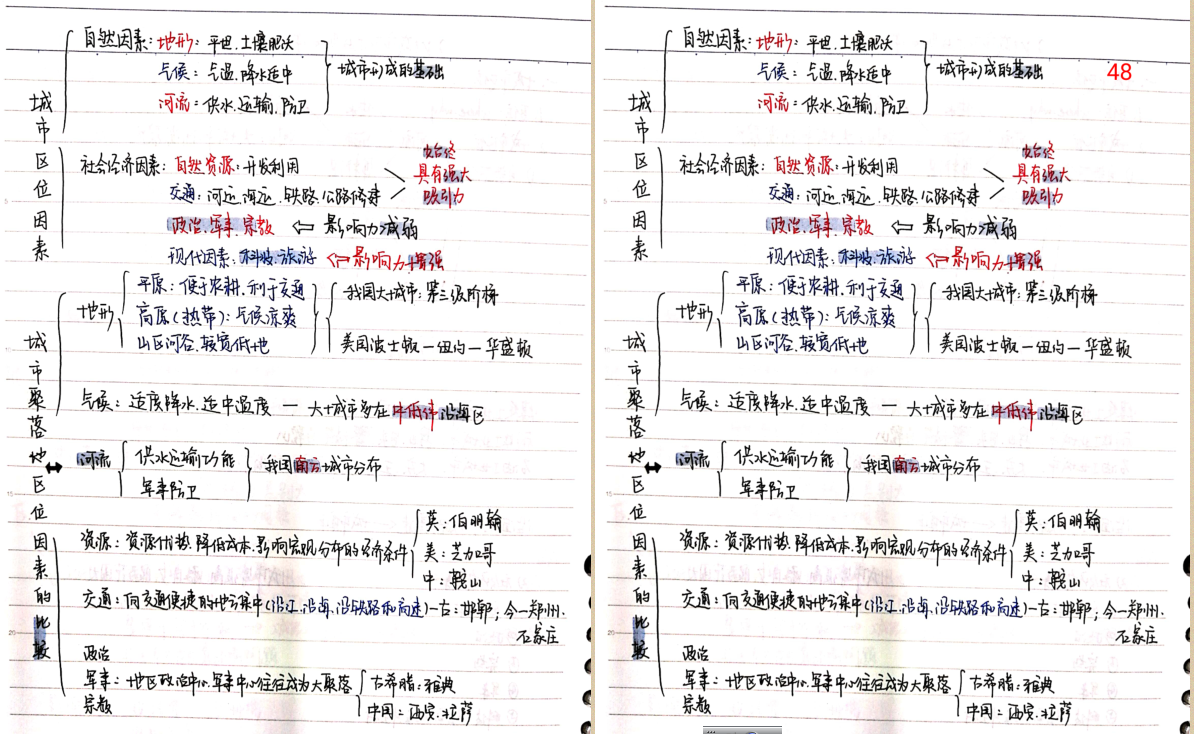 自然因素：地形：平坦.土壤肥沃
气候：气温.降水适中
河流：供水.运输.防卫
城市形成的基础
城市区位因素
社会经济因素：自然资源：开发利用
交通：河运.海运.铁路.公路修建
始终
具有强大
吸引力
政治.军事.宗教 ⇦ 影响力减弱
现代因素：科技.旅游 ⇦影响力增强
城市聚落地区位因素的比较
地形
平原：便于农耕.利于交通
高原(热带)：气候凉爽
山区河谷.较宽低地
我国大城市：第三级阶梯
美国波士顿—纽约—华盛顿
气候：适度降水.适中温度 — 大城市多在中低纬沿海区
河流
供水运输功能
军事防卫
我国南方城市分布
资源：资源优势.降低成本.影响宏观分布的经济条件
英：伯明翰
美：芝加哥
中：鞍山
交通：向交通便捷的地方集中(沿江.沿海.沿铁路和高速)—古：邯郸；今—郑州.
石家庄
政治
军事：地区政治中心.军事中心往往成为大聚落
宗教
古希腊：雅典
中国：西安.拉萨
48
自然因素：地形：平坦.土壤肥沃
气候：气温.降水适中
河流：供水.运输.防卫
城市形成的基础
城市区位因素
社会经济因素：自然资源：开发利用
交通：河运.海运.铁路.公路修建
始终
具有强大
吸引力
政治.军事.宗教 ⇦ 影响力减弱
现代因素：科技.旅游 ⇦影响力增强
城市聚落地区位因素的比较
地形
平原：便于农耕.利于交通
高原(热带)：气候凉爽
山区河谷.较宽低地
我国大城市：第三级阶梯
美国波士顿—纽约—华盛顿
气候：适度降水.适中温度 — 大城市多在中低纬沿海区
河流
供水运输功能
军事防卫
我国南方城市分布
资源：资源优势.降低成本.影响宏观分布的经济条件
英：伯明翰
美：芝加哥
中：鞍山
交通：向交通便捷的地方集中(沿江.沿海.沿铁路和高速)—古：邯郸；今—郑州.
石家庄
政治
军事：地区政治中心.军事中心往往成为大聚落
宗教
古希腊：雅典
中国：西安.拉萨